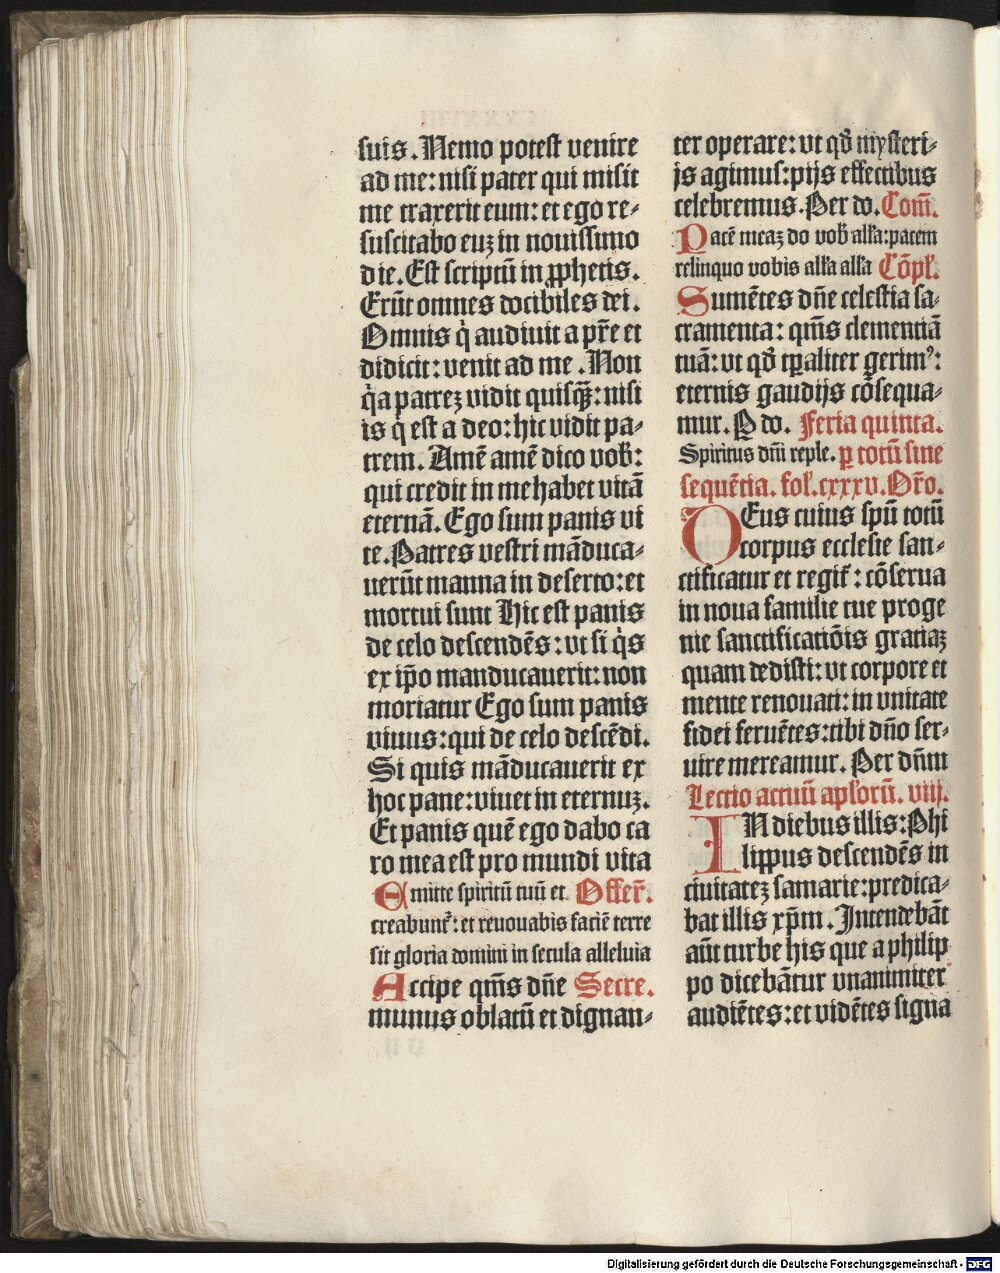 suis. Nemo potest venire
ad me: nisi pater qui misit
me traxerit eum: et ego re-
suscitabo euz in nouissimo
die. Est scriptū in ꝓphetis.
Erūt omnes docibiles dei.
Omnis q̇ audiuit a pr̄e et
didicit: venit ad me. Non
q̇a patrez vidit quisqꝫ: nisi
is q̇ est a deo: hic vidit pa-
trem. Amē amē dico vob̄:
qui credit in me habet vitā
eternā. Ego sum panis vi
te. Patres vestri māduca-
uerūt manna in deserto: et
mortui sunt Hic est panis
de celo descendēs: vt si q̇s
ex ip̄o manducauerit: non
moriatur Ego sum panis
viuus: qui de celo descēdi.
Si quis māducauerit ex
hoc pane: viuet in eternuz.
Et panis quē ego dabo ca
ro mea est pro mundi vita
Emitte spiritū tuū et Offer̄.
creabunt᷑: et reuouabis faciē terre
sit gloria domini in secula alleluia
Accipe qm̄s dn̄e Secre.
munus oblatū et dignan-
ter operare: vt qd̄ mysteri-
js agimus: pijs effectibus
celebremus. Per do. Com̄.
Pacē meaz do vob̄ alła: pacem
relinquo vobis alła alła Cōpł.
Sumētes dn̄e celestia sa-
cramenta: qm̄s clementiā
tuā: vt qd̄ tꝑaliter gerimꝰ:
eternis gaudijs cōsequa-
mur. P do. Feria quinta.
Spiritus dn̄i reple. ꝑ totū sine
sequētia. fol. cxxxv. Or̄o.
DEus cuius spū totū
corpus ecclesie san-
ctificatur et regit᷑: cōserua
in noua familie tue proge
nie sanctificatiōis gratiaz
quam dedisti: vt corpore et
mente renouati: in vnitate
fidei feruētes: tibi dn̄o ser-
uire mereamur. Per dn̄m
Lectio actuū apłorū. viij.
IN diebus illis: Phi
lippus descendēs in
ciuitatez samarie: predica-
bat illis xp̄m. Intendebāt
aūt turbe his que a philip
po dicebātur vnanimiter
audiētes: et vidētes signa
Digitalisierung gefördert durch die Deutsche Forschungsgemeinschaft - DFG